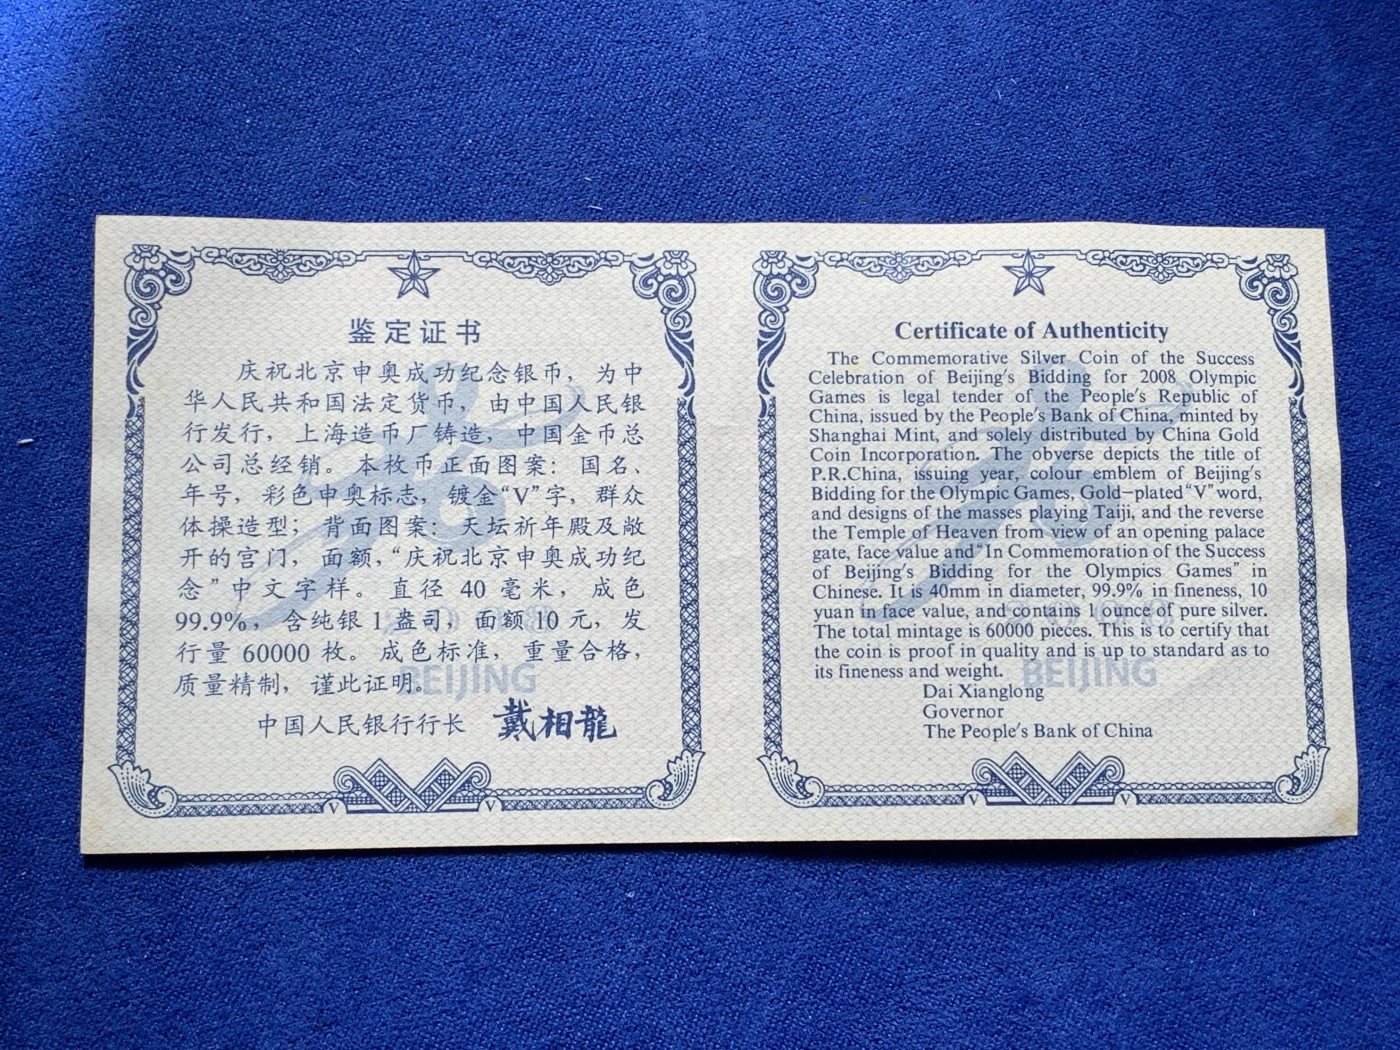 鉴定证书
庆祝北京申奥成功纪念银币，为中
华人民共和国法定货币，由中国人民银
行发行，上海造币厂铸造，中国金币总
公司总经销。本枚币正面图案：国名、
年号，彩色申奥标志，镀金“V”字，群众
体操造型；背面图案：天坛祈年殿及敞
开的宫门，面额，“庆祝北京申奥成功纪
念”中文字样。直径 40 毫米，成色
99.9%，含纯银 1 盎司，面额 10 元，发
行量 60000 枚。成色标准，重量合格，
质量精制，谨此证明。
中国人民银行行长 戴相龍
2008
BEIJING
V V
Certificate of Authenticity
The Commemorative Silver Coin of the Success
Celebration of Beijing's Bidding for 2008 Olympic
Games is legal tender of the People's Republic of
China, issued by the People's Bank of China, minted by
Shanghai Mint, and solely distributed by China Gold
Coin Incorporation. The obverse depicts the title of
P.R.China, issuing year, colour emblem of Beijing's
Bidding for the Olympic Games, Gold-plated “V” word,
and designs of the masses playing Taiji, and the reverse
the Temple of Heaven from view of an opening palace
gate, face value and “In Commemoration of the Success
of Beijing's Bidding for the Olympics Games” in
Chinese. It is 40mm in diameter, 99.9% in fineness, 10
yuan in face value, and contains 1 ounce of pure silver.
The total mintage is 60000 pieces. This is to certify that
the coin is proof in quality and is up to standard as to
its fineness and weight.
Dai Xianglong
Governor
The People's Bank of China
2008
BEIJING
V V